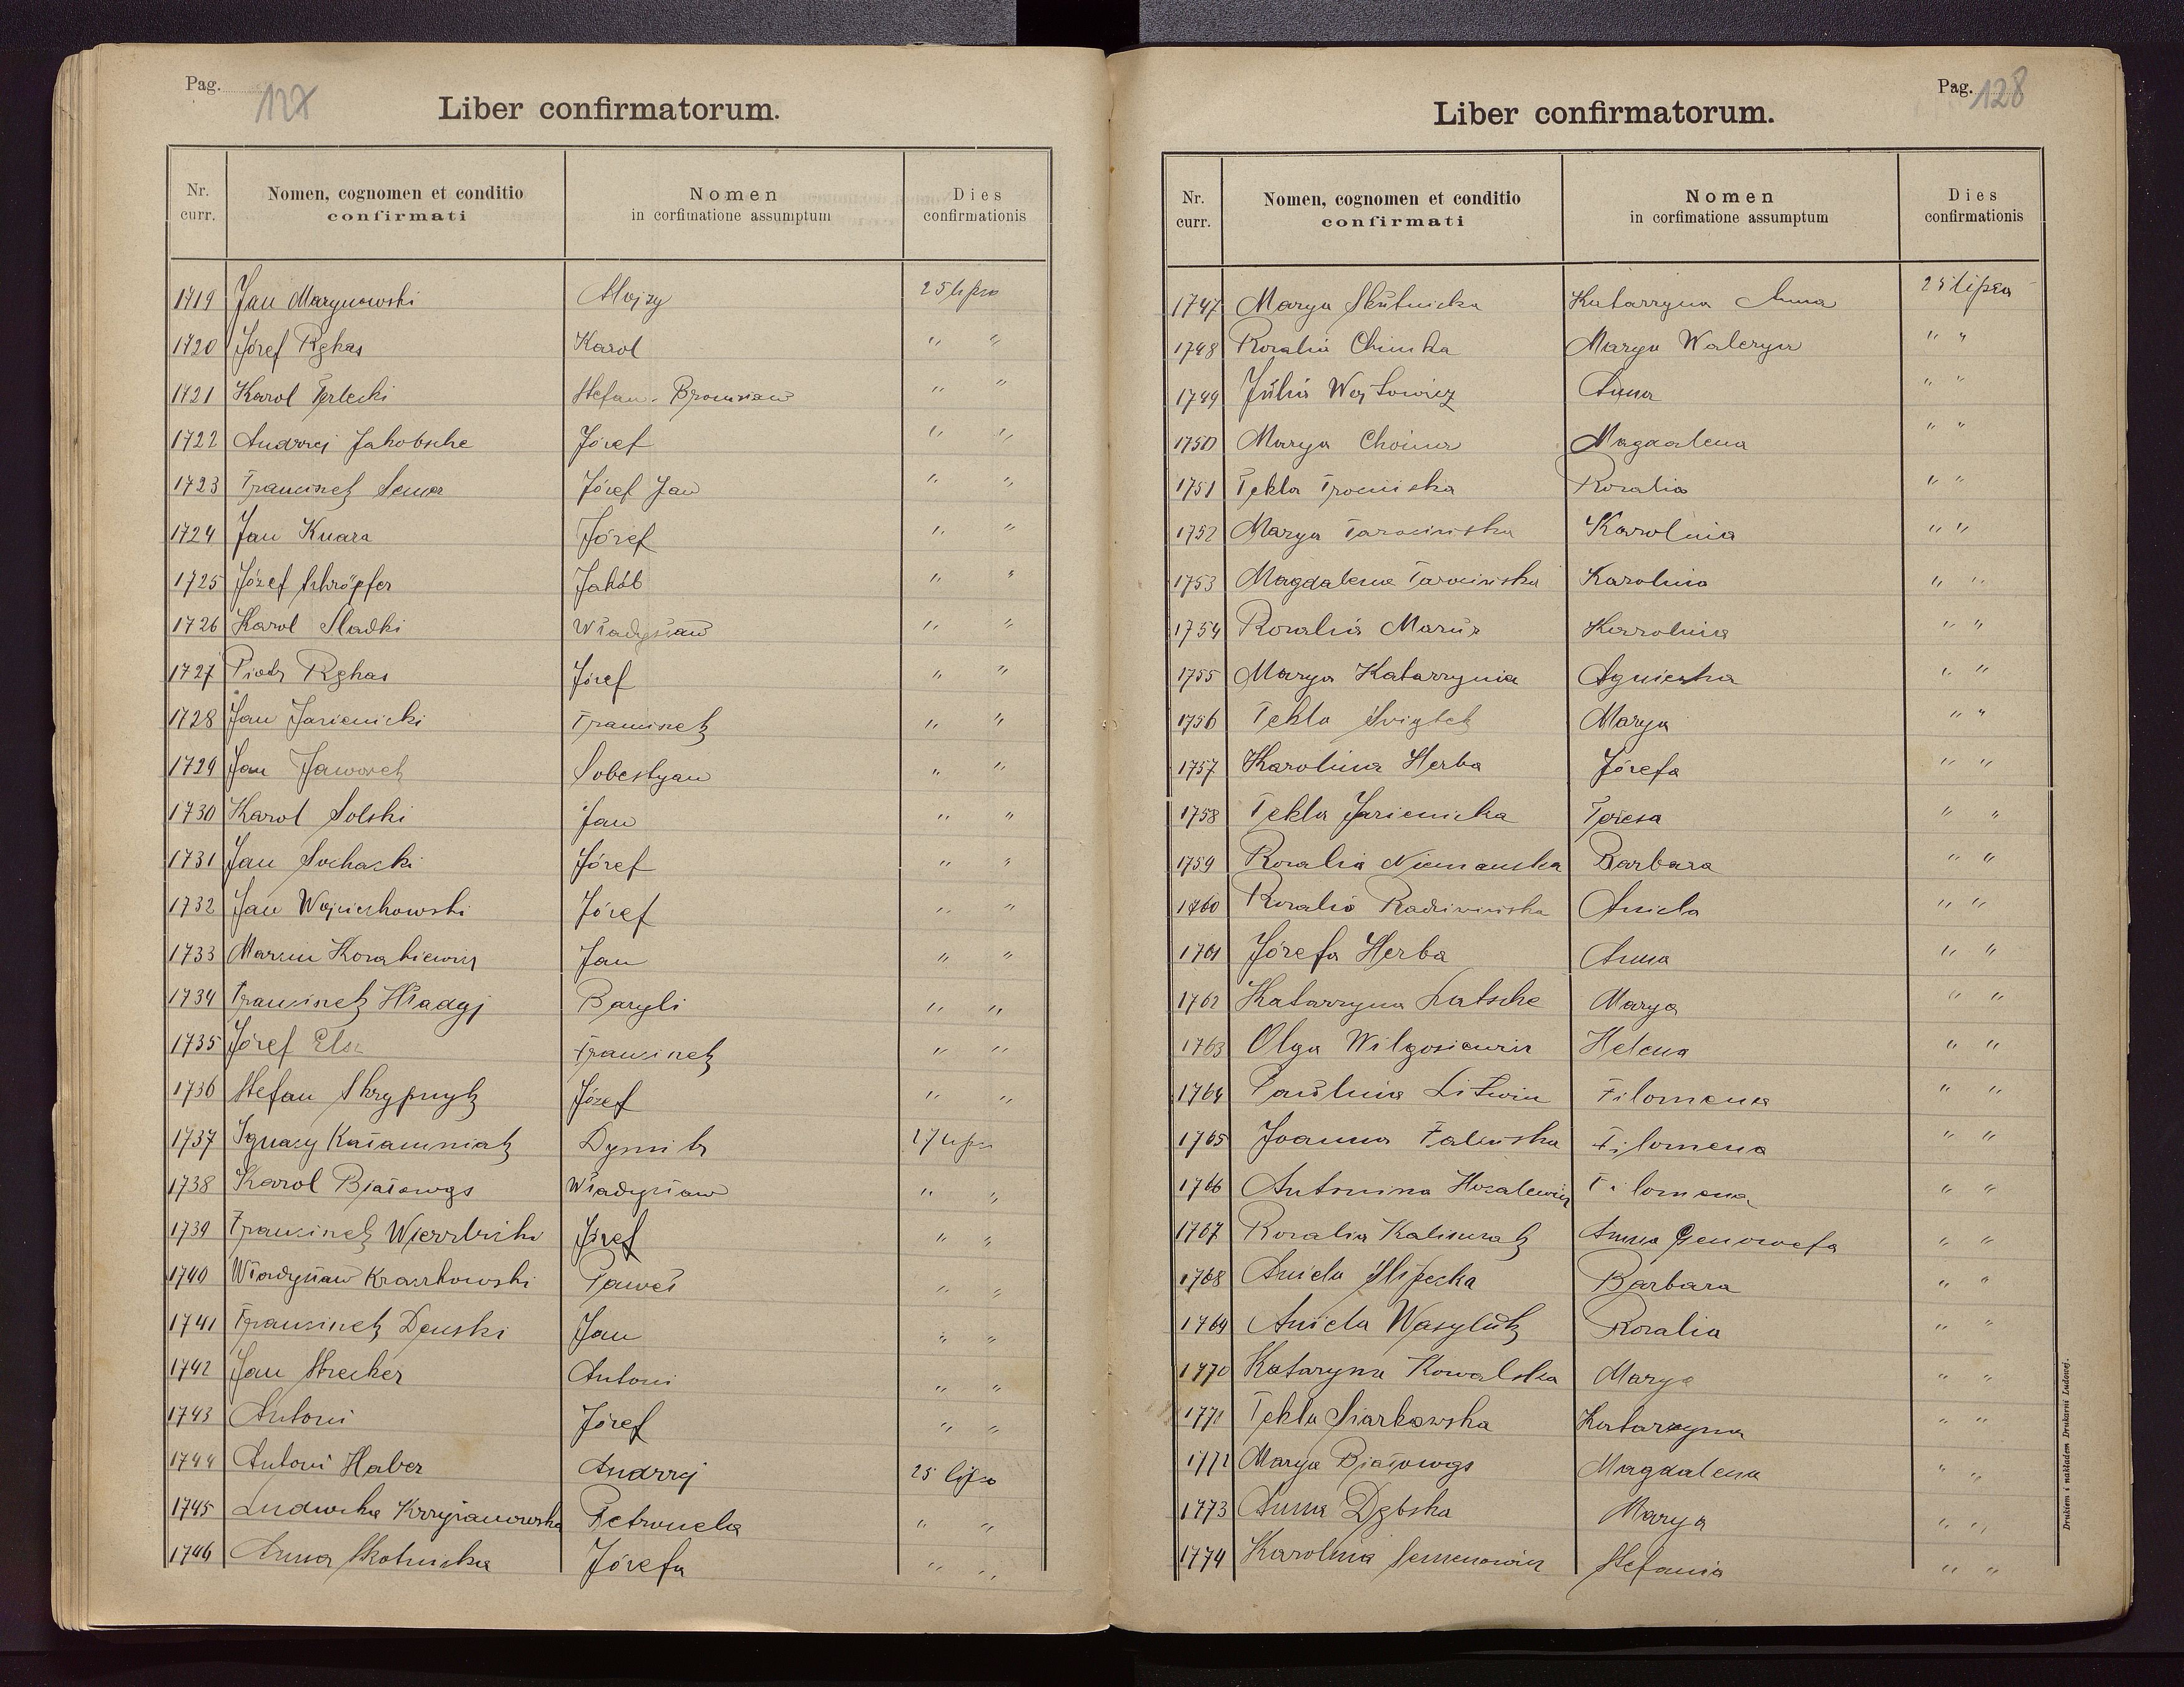 Pag. 127
Liber confirmatorum.
Nr. curr. Nomen, cognomen et conditio confirmati Nomen in corfimatione assumptum Dies confirmationis
1719 Jan Marynowski Alojzy 25 lipca
1720 Józef Rękas Karol " "
1721 Karol Terlecki Stefan Bronisław " "
1722 Andrzej Jakobsche Józef " "
1723 Franciszek Sener Józef Jan " "
1724 Jan Knara Józef " "
1725 Józef Schröpfer Jakób " "
1726 Karol Sladki Władysław " "
1727 Piotr Rękas Józef " "
1728 Jan Jasienicki Franciszek " "
1729 Jan Jaworek Sobestyan " "
1730 Karol Solski Jan " "
1731 Jan Sochacki Józef " "
1732 Jan Wojciechowski Józef " "
1733 Marcin Korakiewicz Jan " "
1734 Franciszek Bazyli " "
1735 Józef Franciszek " "
1736 Stefan Skrypnyk Józef " "
1737 Ignacy Kałamniak Dymitr 27 lipca
1738 Karol Białowąs Władysław " "
1739 Franciszek Wierzbicki Józef " "
1740 Władysław Kraszkowski Paweł " "
1741 Franciszek Denski Jan " "
1742 Jan Strecker Antoni " "
1743 Antoni Józef " "
1744 Antoni Haber Andrzej 25 lipca
1745 Ludwika Krzyżanowska Petronela " "
1746 Anna Skotnicka Józefa " "
Pag. 128
Liber confirmatorum.
Nr. curr. Nomen, cognomen et conditio confirmati Nomen in corfimatione assumptum Dies confirmationis
1747 Marya Skutnicka Katarzyna Anna 25 lipca
1748 Rozalia Chimka Marya Walerya " "
1749 Julia Wojtowicz Anna " "
1750 Marya Choina Magdalena " "
1751 Tekla Rozalia " "
1752 Marya Tarocińska Karolina " "
1753 Magdalena Tarocińska Karolina " "
1754 Rozalia Karolina " "
1755 Marya Katarzynia Agnieszka " "
1756 Tekla Marya " "
1757 Karolina Herba Józefa " "
1758 Tekla Jasienicka Teresa " "
1759 Rozalia Niemanska Barbara " "
1760 Rozalia Radziwinska Aniela " "
1761 Józefa Herba Anna " "
1762 Katarzyna Latsche Marya " "
1763 Olga Wilgosiewicz Helena " "
1764 Paulina Litwin Filomena " "
1765 Joanna Zaleńska Filomena " "
1766 Antonina Hozalewicz Filomena " "
1767 Rozalia Kalisczak Anna Genowefa " "
1768 Aniela Slipecka Barbara " "
1769 Aniela Wasyluk Rozalia " "
1770 Kataryna Kowalska Marya " "
1771 Tekla Siarkowska Katarzyna " "
1772 Marya Białowąs Magdalena " "
1773 Anna Dębska Marya " "
1774 Karolina Semenowicz Stefania " "
Drukiem i nakładem Drukarni Ludowej.